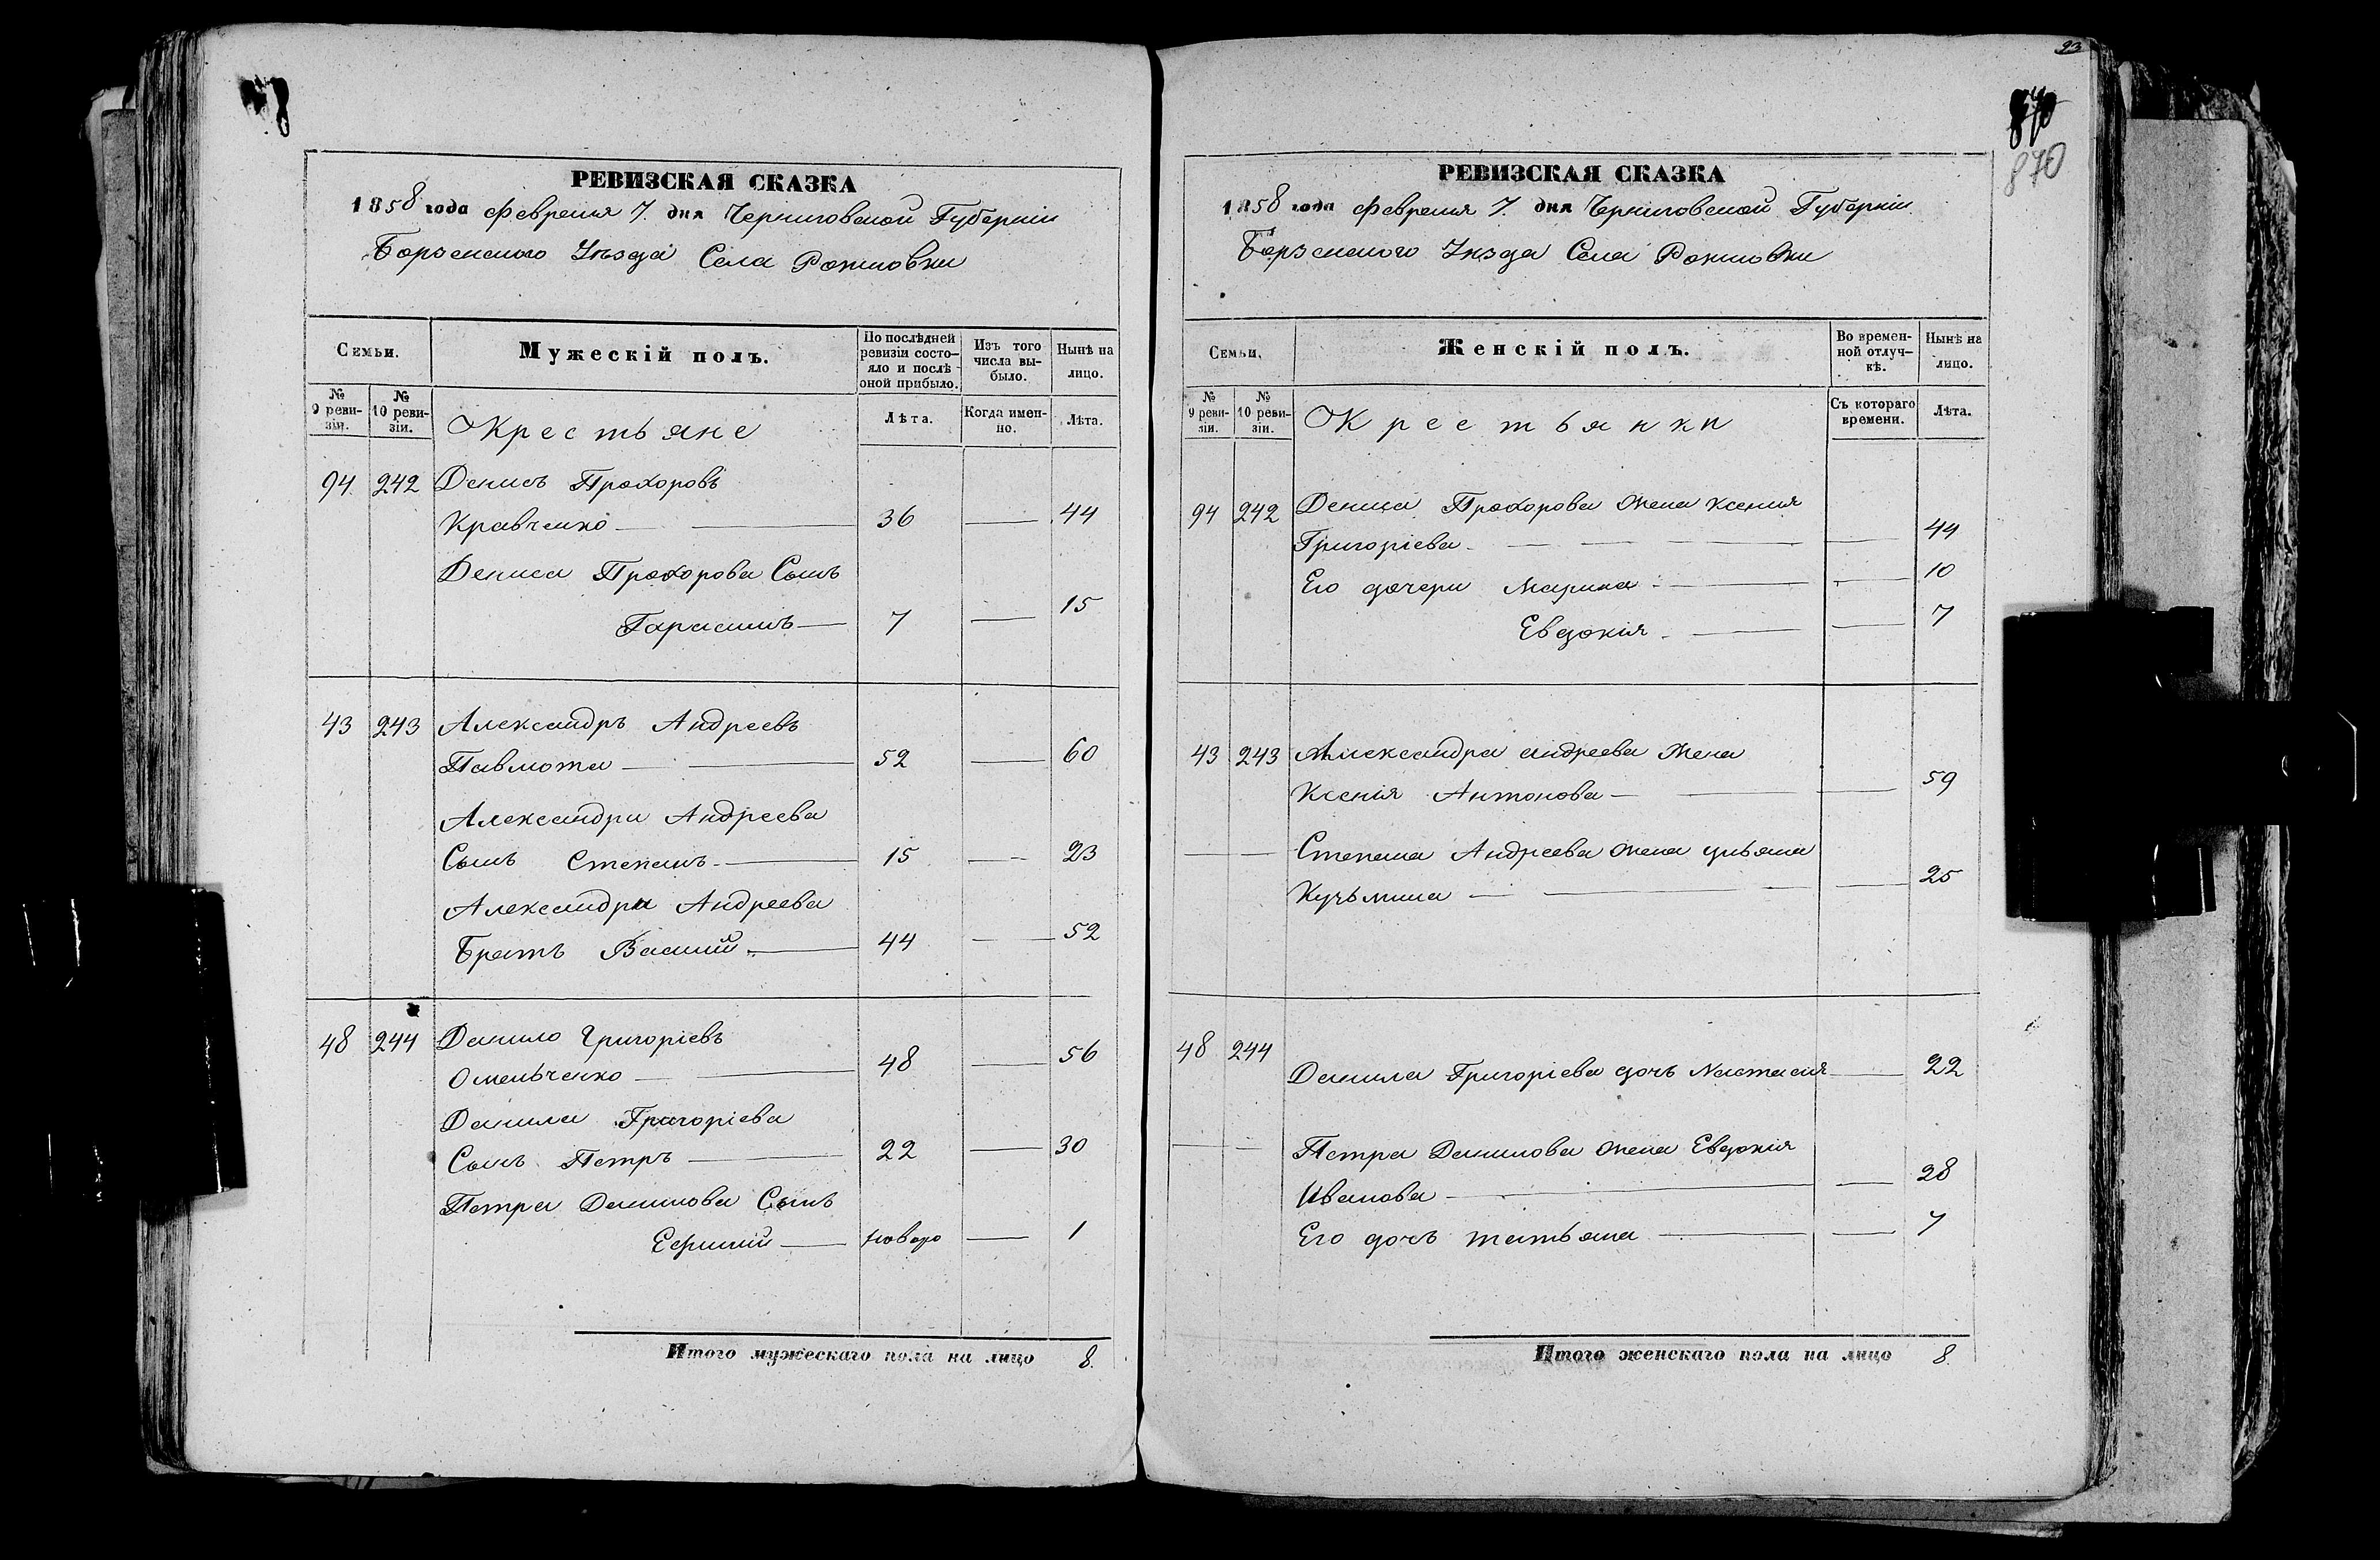 РЕВИЗСКАЯ СКАЗКА
1858 года Февраля 7. дня Черниговской Губерніи
Борзенского Уѣзда Села Рожновки
Семьи.
Мужескій полъ.
По послѣдней ревизіи состояло и послѣ оной прибыло.
Изъ того числа выбыло.
Нынѣ на лицо.
№ 9 ревизіи.
№ 10 ревизіи.
Крестьяне
Лѣта.
Когда именно.
Лѣта.
94 242 Денисъ Прохоровъ
Кравченко 36 44
Дениса Прохорова Сынъ
Гарасимъ 7 15
43 243 Александръ Андреевъ
Павлюта 52 60
Александра Андреева
Сынъ Степанъ 15 23
Александра Андреева
Братъ Василий 44 52
48 244 Данило Григоріевъ
Омельченко 48 56
Данила Григоріева
Сынъ Петръ 22 30
Петра Данилова Сынъ
Ефимий новоро 1
Итого мужескаго пола на лицо 8.
93
870
РЕВИЗСКАЯ СКАЗКА
1858 года Февраля 7. дня Черниговской Губерніи
Борзенского Уѣзда Села Рожновки
Семьи.
Женскій полъ.
Во временной отлучкѣ.
Нынѣ на лицо.
№ 9 ревизіи.
№ 10 ревизіи.
Крестьянки
Съ котораго времени.
Лѣта.
94 242 Дениса Прохорова жена Ксения
Григоріева 44
Его дочери Марина 10
Евдокія 7
43 243 Александра Андреева жена
Ксенія Антонова 59
Степана Андреева жена ульяна
Кузьмина 25
48 244
Данила Григоріева дочь Настасия 22
Петра Данилова жена Евдокія
Иванова 28
Его дочь татьяна 7
Итого женскаго пола на лицо 8.